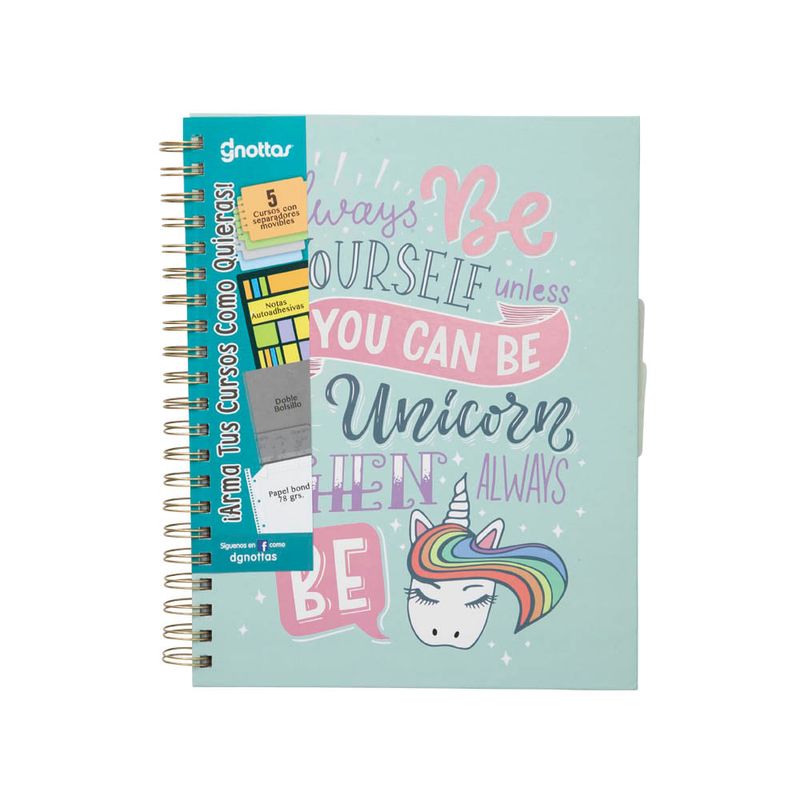 dgnottas
¡Arma Tus Cursos Como Quieras!
5
Cursos con
separadores
movibles
Notas
Autoadhesivas
Doble
Bolsillo
Papel bond
78 grs.
Síguenos en f como
dgnottas
lways Be
OURSELF unless
YOU CAN BE
Unicorn
HEN ALWAYS
BE